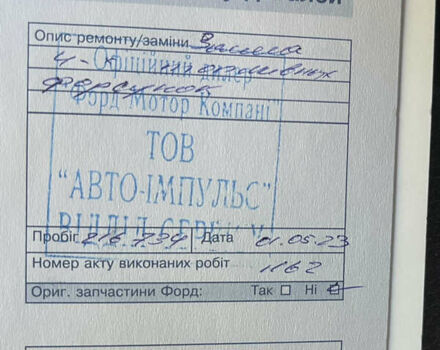 Опис ремонту/заміни Замена
4-х топливных
Офіційний дилер
форсунок
"Форд Мотор Компані"
ТОВ
"АВТО-ІМПУЛЬС"
ВІДДІЛ СЕРВІСУ
Пробіг 216.739 Дата 01.05.23
Номер акту виконаних робіт 1162
Ориг. запчастини Форд: Так Ні